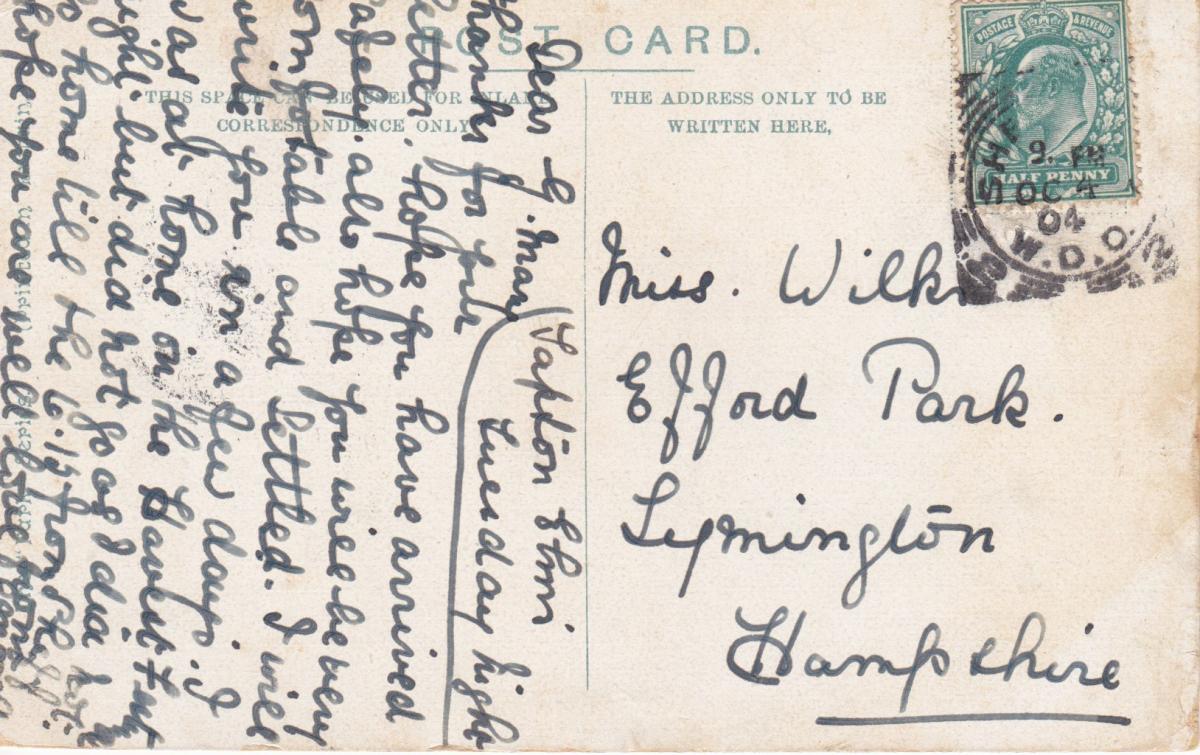 POST CARD.
THIS SPACE CAN BE USED FOR INLAND
CORRESPONDENCE ONLY.
THE ADDRESS ONLY TO BE
WRITTEN HERE,
POSTAGE & REVENUE
HALF PENNY
9. PM
OC 4
04
W.D.O.
Miss. Wilk
Efford Park.
Lymington
Hampshire
Tapton Elmi
Tuesday night
Dear G. Mary
thanks for your
letter. hope you have arrived
safely. also hope you will be very
comfortable and settled. I will
write you in a few days. I
was at home on the
night but did not go as I did
go home till the 6.15 from
hope you are well love from